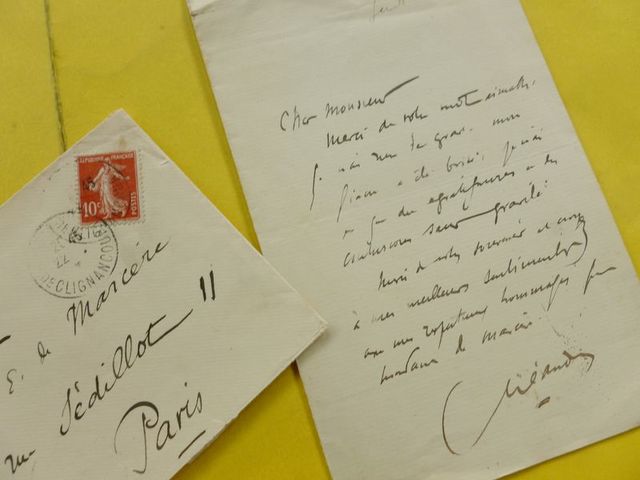 REPUBLIQUE FRANÇAISE
10c
POSTES
DE CLIGNANCOURT
E. de Marcère
rue Sédillot 11
Paris
Cher Monsieur
Merci de votre mot aimable.
Je n'ai rien de grave. mon
a été brisé, je n'ai
eu que des égratignures et des
contusions sans gravité
Merci de votre souvenir et croyez
à mes meilleurs sentiments
avec mes respectueux hommages pour
madame de Marcère